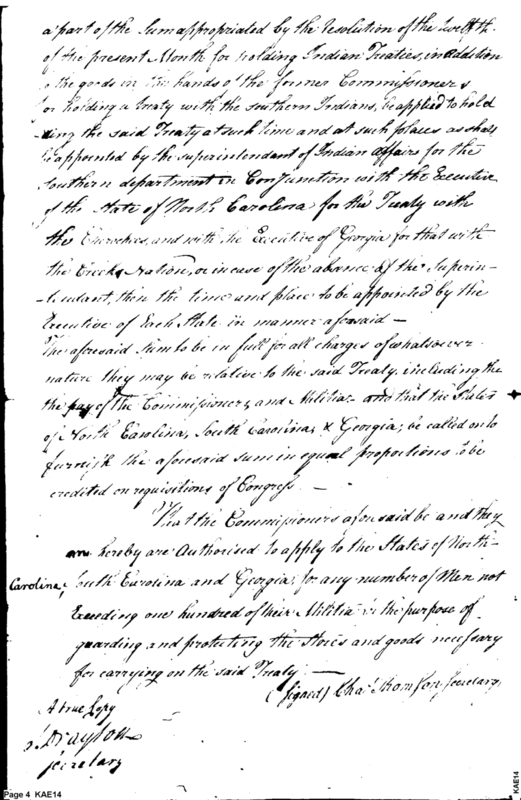 a part of the Sum appropriated by the Resolution of the twelfth
of the present Month for holding Indian Treaties, in addition
to the goods in the hands of the former Commissioners
for holding a Treaty with the Southern Indians, be applied to hold
-ing the said Treaty at such time and at such places as shall
be appointed by the superintendant of Indian affairs for the
Southern department in Conjunction with the Executive
of the State of North Carolina for the Treaty with
the Cherokees, and with the Executive of Georgia for that with
the Creek Nation, or in case of the absence of the Superin-
-tendant, then the time and place to be appointed by the
Executive of Each State in manner aforesaid —
The aforesaid Sum to be in full for all charges of whatsoever
nature they may be relative to the said Treaty, including the
the pay of the Commissioners, and Militia and that the States
of North Carolina, South Carolina, & Georgia, be called on to
furnish the aforesaid sum in equal proportions to be
credited on requisitions of Congress —
That the Commissioners aforesaid be and they
are hereby are Authorised to apply to the States of North-
Carolina, South Carolina and Georgia, for any number of Men not
Exceeding one hundred of their Militia for the purpose of
guarding and protecting the Stores and goods necessary
for carrying on the said Treaty —
(Signed) Chas Thomson, Secretary
A true Copy
Drayton
Secretary
Page 4 KAE14
KAE14